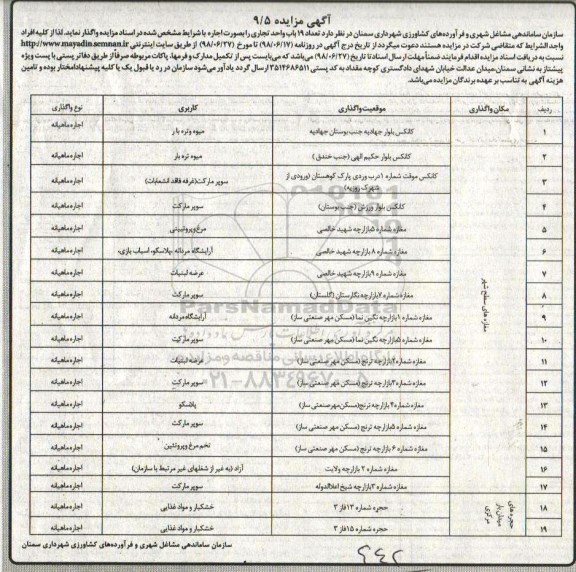 آگهی مزایده ۹/۵
سازمان ساماندهی مشاغل شهری و فرآورده‌های کشاورزی شهرداری سمنان در نظر دارد تعداد ۱۹ باب واحد تجاری را بصورت اجاره با شرایط مشخص شده در اسناد مزایده واگذار نماید. لذا از کلیه افراد
واجد الشرایط که متقاضی شرکت در مزایده هستند دعوت میگردد از تاریخ درج آگهی در روزنامه (۹۸/۰۶/۱۷) تا مورخ (۹۸/۰۶/۲۷) از طریق سایت اینترنتی http://www.mayadin.semnan.ir
نسبت به دریافت اسناد مزایده اقدام فرمایند ضمناً مهلت ارسال اسناد تا تاریخ (۹۸/۰۶/۲۷) می‌باشد که می‌بایست پس از تکمیل مدارک و فرمها، پاکات مربوطه صرفاً از طریق دفاتر پستی با پست ویژه
پیشتاز به نشانی سمنان میدان عدالت خیابان شهدای دادگستری کوچه مقداد به کد پستی ۳۵۱۴۶۸۶۵۱۱ ارسال گردد یادآور می‌شود سازمان در رد یا قبول یک یا کلیه پیشنهادها مختار بوده و تامین
هزینه آگهی به تناسب بر عهده برندگان مزایده می‌باشد.
ردیف مکان واگذاری موقعیت واگذاری کاربری نوع واگذاری
۱ کانکس بلوار جهادیه جنب بوستان جهادیه میوه وتره بار اجاره ماهیانه
۲ کانکس بلوار حکیم الهی (جنب خندق) میوه تره بار اجاره ماهیانه
۳ کانکس موقت شماره ۱ درب وردی پارک کوهستان (ورودی از شهرک روزیه) سوپر مارکت (غرفه فاقد انشعابات) اجاره ماهیانه
۴ کانکس بلوار ورزش (جنب بوستان) سوپر مارکت اجاره ماهیانه
مغازه های سطح شهر
۵ مغازه شماره ۵ بازارچه شهید خالصی مرغ وپروتئینی اجاره ماهیانه
۶ مغازه شماره ۸ بازارچه شهید خالصی آرایشگاه مردانه -پلاسکو، اسباب بازی، اجاره ماهیانه
۷ مغازه شماره ۹ بازارچه شهید خالصی عرضه لبنیات اجاره ماهیانه
۸ مغازه شماره ۷ بازارچه نگارستان (گلستان) سوپر مارکت اجاره ماهیانه
۹ مغازه شماره ۱ بازارچه نگین نما (مسکن مهر صنعتی ساز) آرایشگاه مردانه اجاره ماهیانه
۱۰ مغازه شماره ۵ بازارچه نگین نما (مسکن مهر صنعتی ساز) سوپر مارکت اجاره ماهیانه
۱۱ مغازه شماره ۲ بازارچه ترنج (مسکن مهر صنعتی ساز) عرضه لبنیات اجاره ماهیانه
۱۲ مغازه شماره ۳ بازارچه ترنج (مسکن مهر صنعتی ساز) سوپر مارکت اجاره ماهیانه
۱۳ مغازه شماره ۴ بازارچه ترنج (مسکن مهر صنعتی ساز) پلاسکو اجاره ماهیانه
۱۴ مغازه شماره ۵ بازارچه ترنج (مسکن مهر صنعتی ساز) سوپر مارکت اجاره ماهیانه
۱۵ مغازه شماره ۶ بازارچه ترنج (مسکن مهر صنعتی ساز) تخم مرغ وپروتئین اجاره ماهیانه
۱۶ مغازه شماره ۲ بازارچه ولایت آزاد (به غیر از شغلهای غیر مرتبط با سازمان) اجاره ماهیانه
۱۷ مغازه شماره ۳ بازارچه شیخ اعلاالدوله سوپر مارکت اجاره ماهیانه
حجره های میدان بار مرکزی
۱۸ حجره شماره ۱۳ فاز ۳ خشکبار و مواد غذایی اجاره ماهیانه
۱۹ حجره شماره ۱۵ فاز ۳ خشکبار و مواد غذایی اجاره ماهیانه
سازمان ساماندهی مشاغل شهری و فرآورده‌های کشاورزی شهرداری سمنان
ParsNamadData
۰۲۱-۸۸۳۴۹۶۷۰